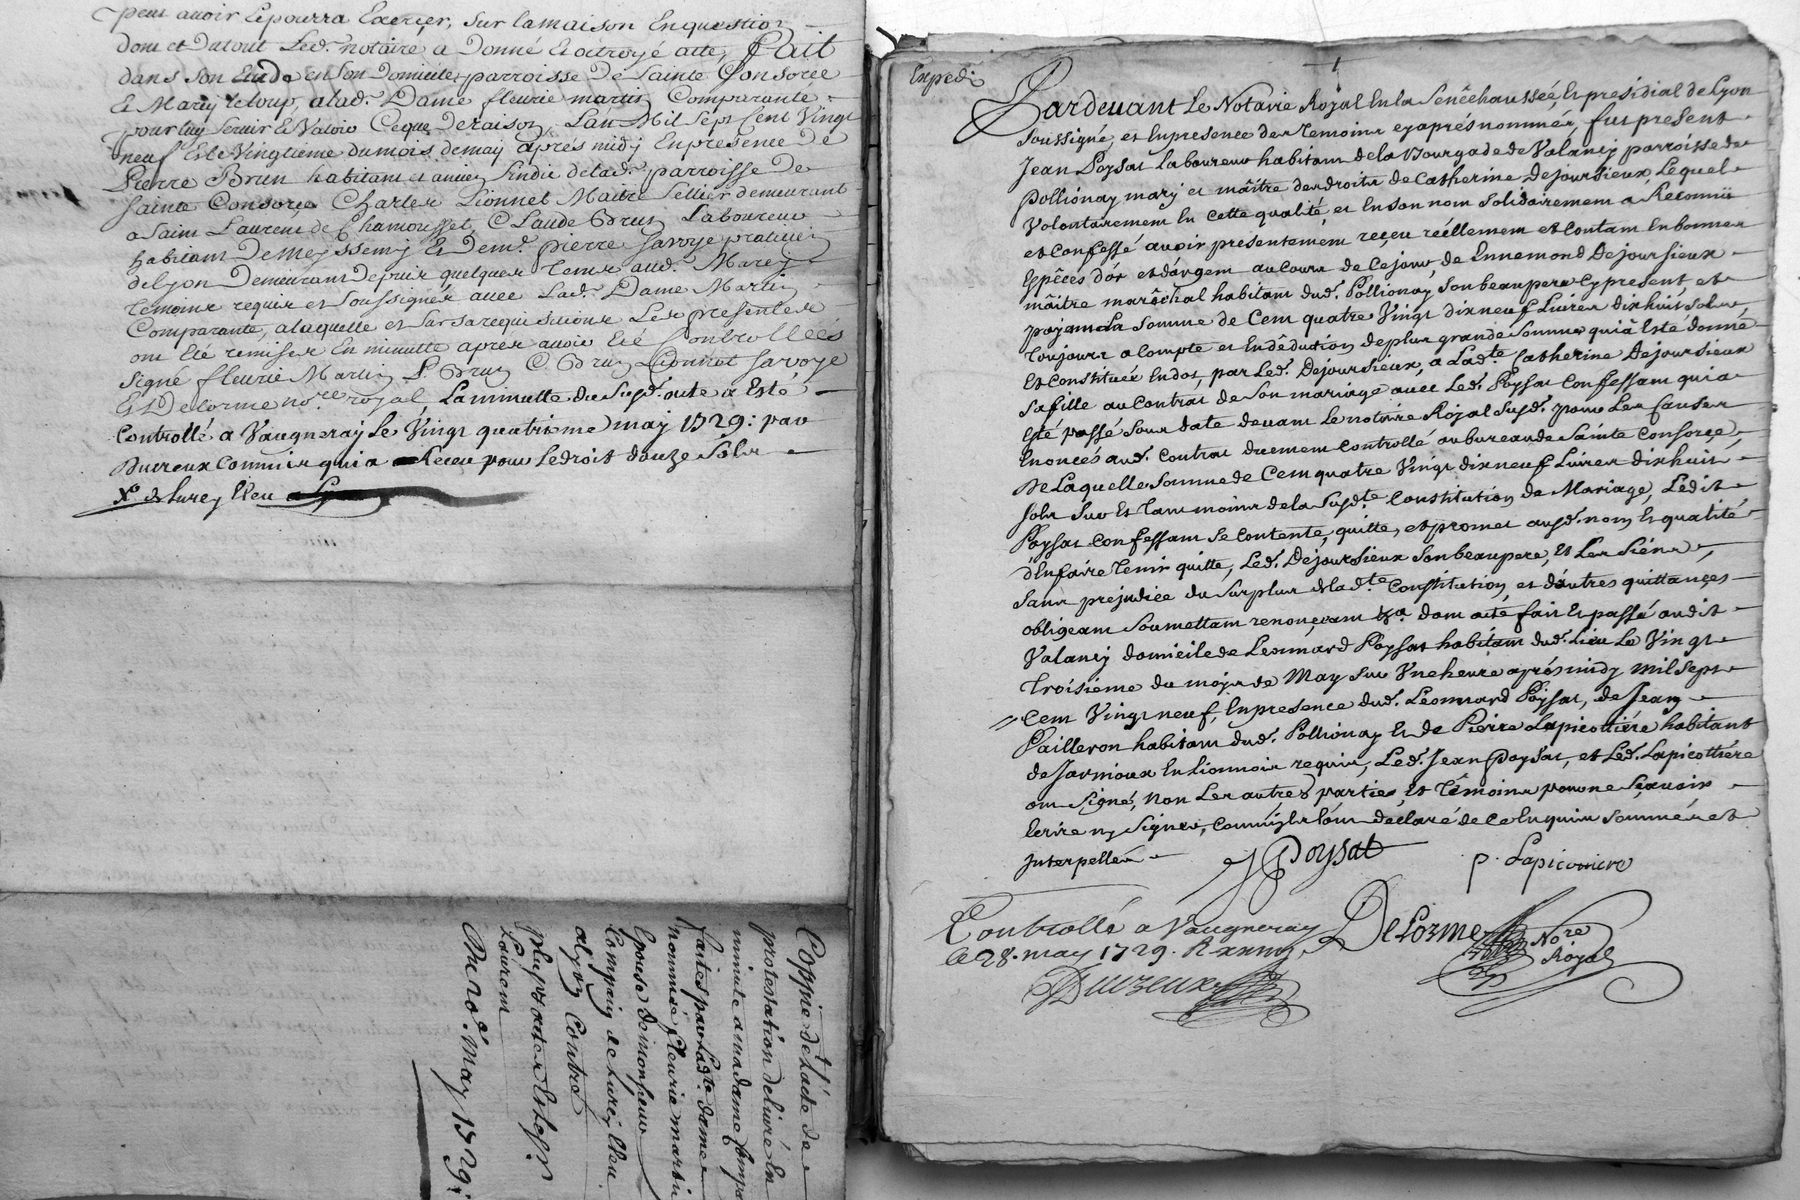 peut avoir Et pourra Exerçer, Sur lamaison Enquestion
dont et Dutout Led. notaire, a Donné Et octroyé acte, Fait
dans Son Etude en Son Domicile, parroisse De Sainte Consorce
Et Marcy leloup, a lad. Dame fleurie martin Comparante
pour luy Servir Et Valoir Ceque Deraison, Lan Mil Sept Cent Vingt
neuf Et le Vingtieme dumois demay aprés midy En presence De
Pierre Brun habitant et ancien Sindic delad. parroisse De
Sainte Consorce Charles Lionnet Maitre Sellier demeurant
a Saint Laurent de Chamousset, Claude Brun Laboureur
habitant De meyssemy Et Dem.e pierre Savoye praticien
delyon Demeurant Depuis quelques Tems aud. Marcy
Temoins requis et Soussignés avec Lad. Dame Martin
Comparante, a laquelle et Sur Sa requisitions Les presentes
ont Eté remises En minutte aprés avoir Eté Controllées
Signé fleurie Martin P Brun C Brun Lionnet Savoye
Et Delorme no.re royal, La minutte du Susd. acte a Esté
Controllé a Vaugneray Le Vingt quatrieme may 1729: par
Ducreux Commis qui a Receu pour Ledroit douze Sols
Coppie de Lacte de
protestation delivré En
minute a madame
faites par Lad.te dame
nommée fleurie marti
Epouse de monsieur
Compain de Surey lieu
a Lyon Contre
plusieurs
Laurent
Du 20.e may 1729:
Expedié
Pardevant Le Notaire Royal En la Senêchaussée, Et présidial de Lyon
Soussigné, et En presence des temoins cy aprés nommés, fut present
Jean Poysat Laboureur habitant de la Bourgade de Valancy parroisse de
Pollionay mary et maître des droits de Catherine Dejoursieux, Lequel
Volontairement En Cette qualité, et En Son nom Solidairement a Reconnu
et Confessé avoir présentement reçeu réellement et Contant En bonnes
Espêces d'or et d'argent au Cours de Ce jour, de Ennemond Dejoursieux
mâitre marêchal habitant dud. Pollionay Son beaupere Cy present, et
payant La Somme de Cent quatre Vingt dix neuf Livres dixhuit Sols
toujours a Compte et En dêduction de plus grande Somme qui a Esté donné
Et Constituée En dot, par Led. Dejoursieux, a Lad.te Catherine Dejoursieux
Sa fille au Contrat de Son mariage avec Led. Poysat Confessant qui a
Esté passé Sous date devant Le notaire Royal Susd. pour Les Causes
Enoncés aud. Contrat duement Controllé au bureau de Sainte Consorce,
De Laquelle Somme de Cent quatre Vingt dix neuf Livres dixhuit
Sols Sur Et Tant moins de la Susd.te Constitution de Mariage, Ledit
Poysat Confessant Se Contente, quitte, et promet ausd. nom Et qualité
d'En faire tenir quitte, Led. Dejoursieux Son beaupere, Et Les Siens,
Sans prejudice du Surplus de lad.te Constitution, et d'autres quittances
obligeant Soumettant renonçeant &a. dont acte fait Et passé audit
Valancy domicile de Leonnard Poysat habitant dud. Lieu Le Vingt
troisieme du mois de May Sur Une heure aprés midy mil Sept
Cent Vingt neuf, En presence dud. Leonnard Poysat, de Jean
Pailleron habitant dud. Pollionay Et de Pierre Lapicottiére habitant
de Jarnioux En Lionnois requis, Led. Jean Poysat, et Led. Lapicottiére
ont Signé, Non Les autres parties, Et têmoins pour ne Sçavoir
Ecrire ny Signer, Comme ils l'ont declaré de Ce Enquis Sommés et
Interpellés
J Poysat
p. Lapicottiere
Controllé a Vaugneray
le 28. may 1729.
Ducreux
Delorme No.re Royal